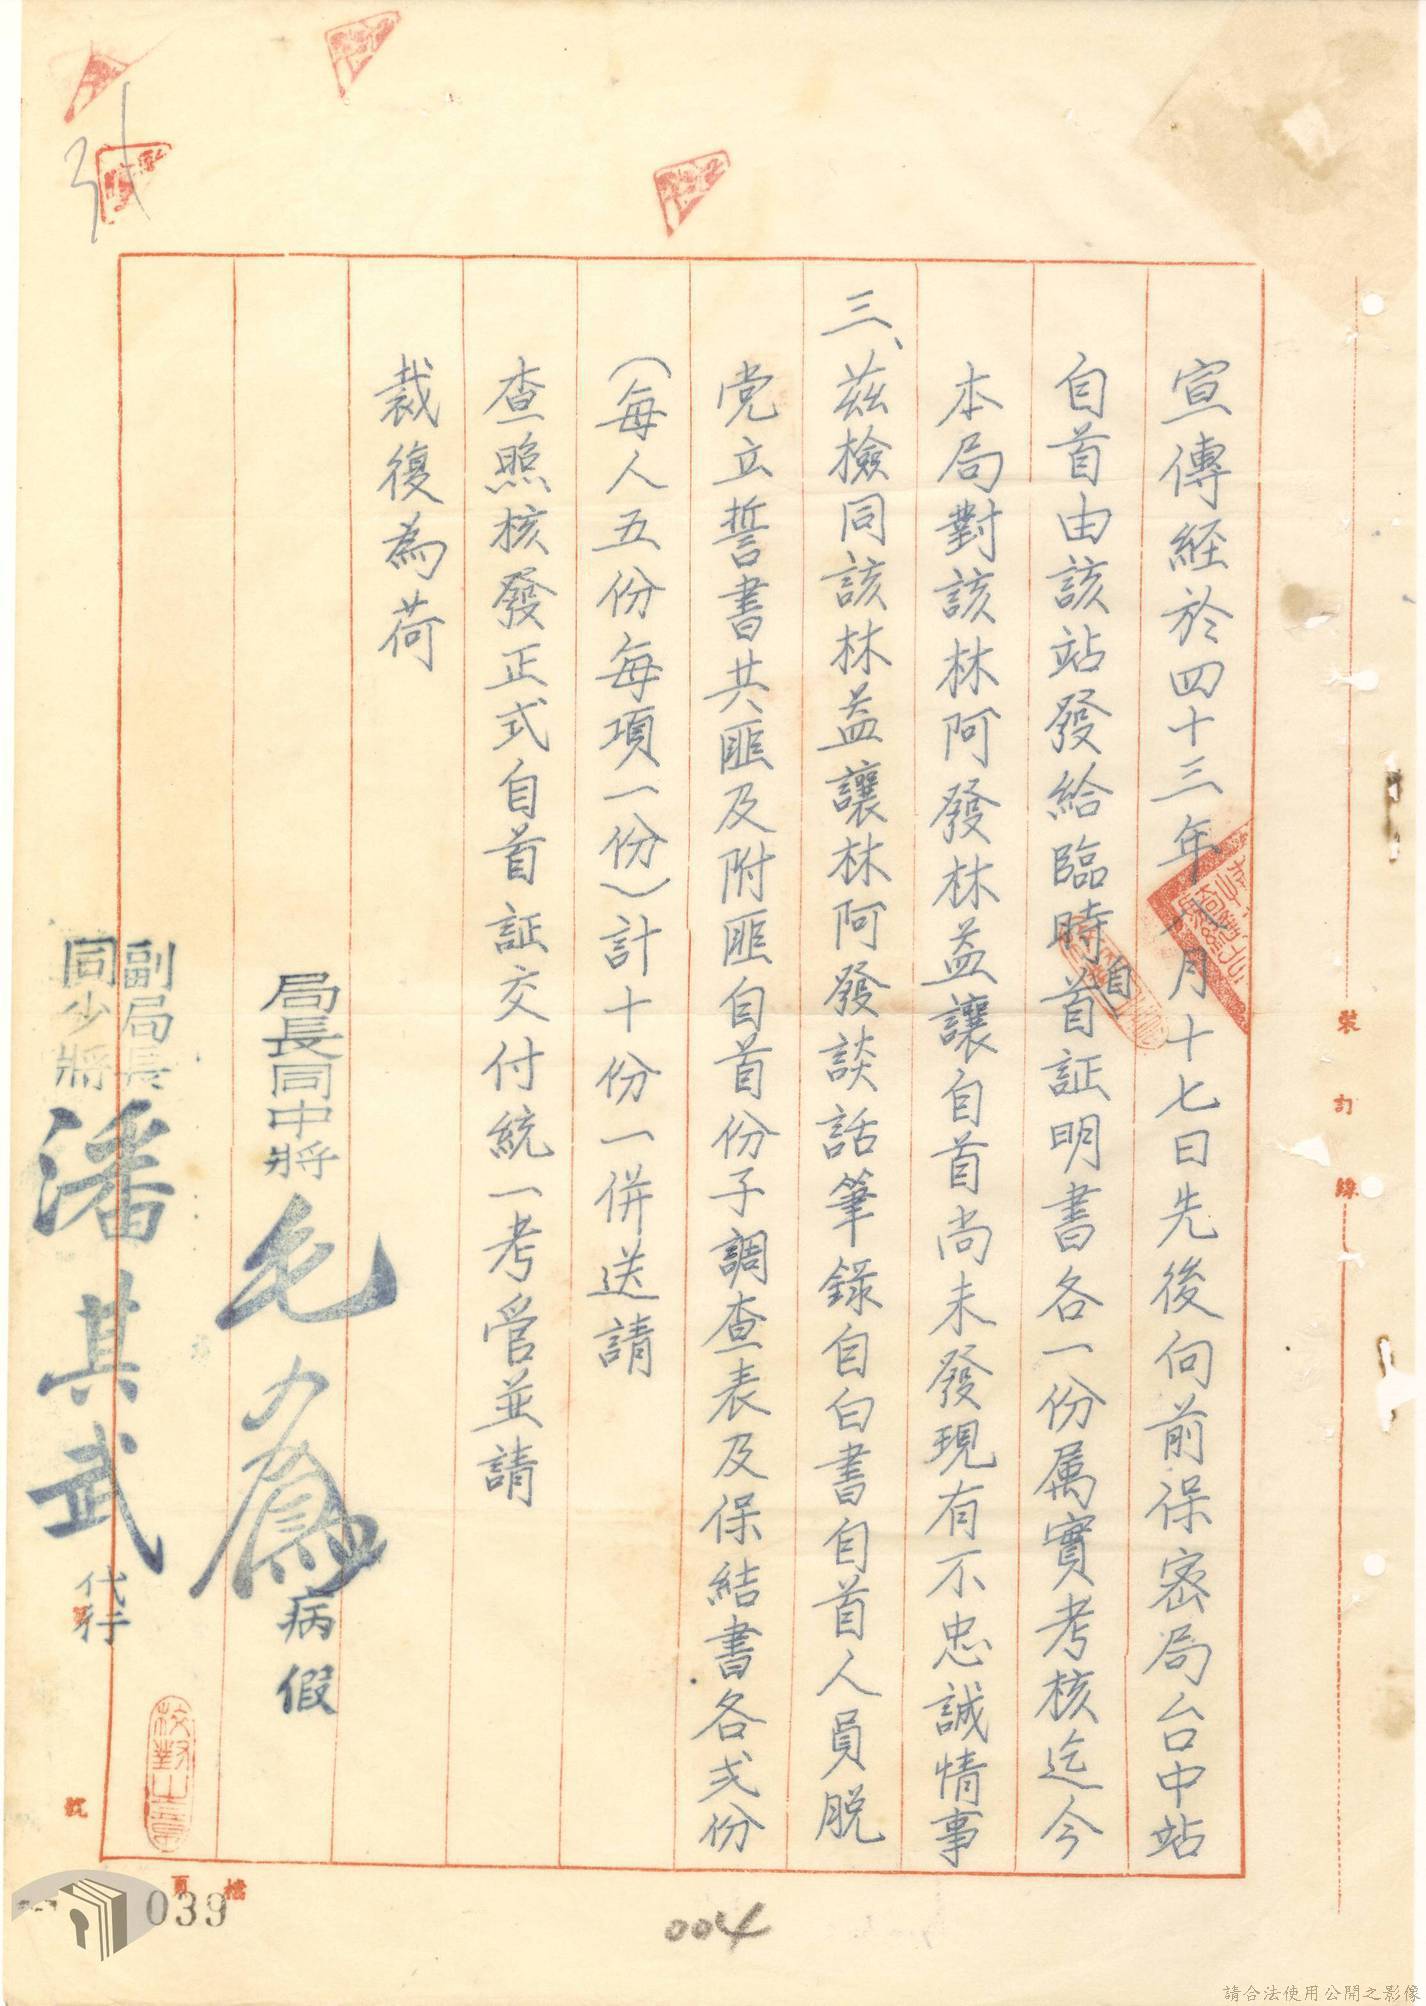 宣傳經於四十三年八月十七日先後向前保密局台中站
自首由該站發給臨時自首証明書各一份属實考核迄今
本局對該林阿發林益讓自首尚未發現有不忠誠情事
三、茲檢同該林益讓林阿發談話筆錄自白書自首人員脫
党立誓書共匪及附匪自首份子調查表及保結書各弍份
(每人五份每項一份)計十份一併送請
查照核發正式自首証交付統一考管並請
裁復為荷
局長同中將 毛 病假
副局長
同少將 潘其武 代行
校對之章
裝訂線
檔
頁
號
039
004
請合法使用公開之影像